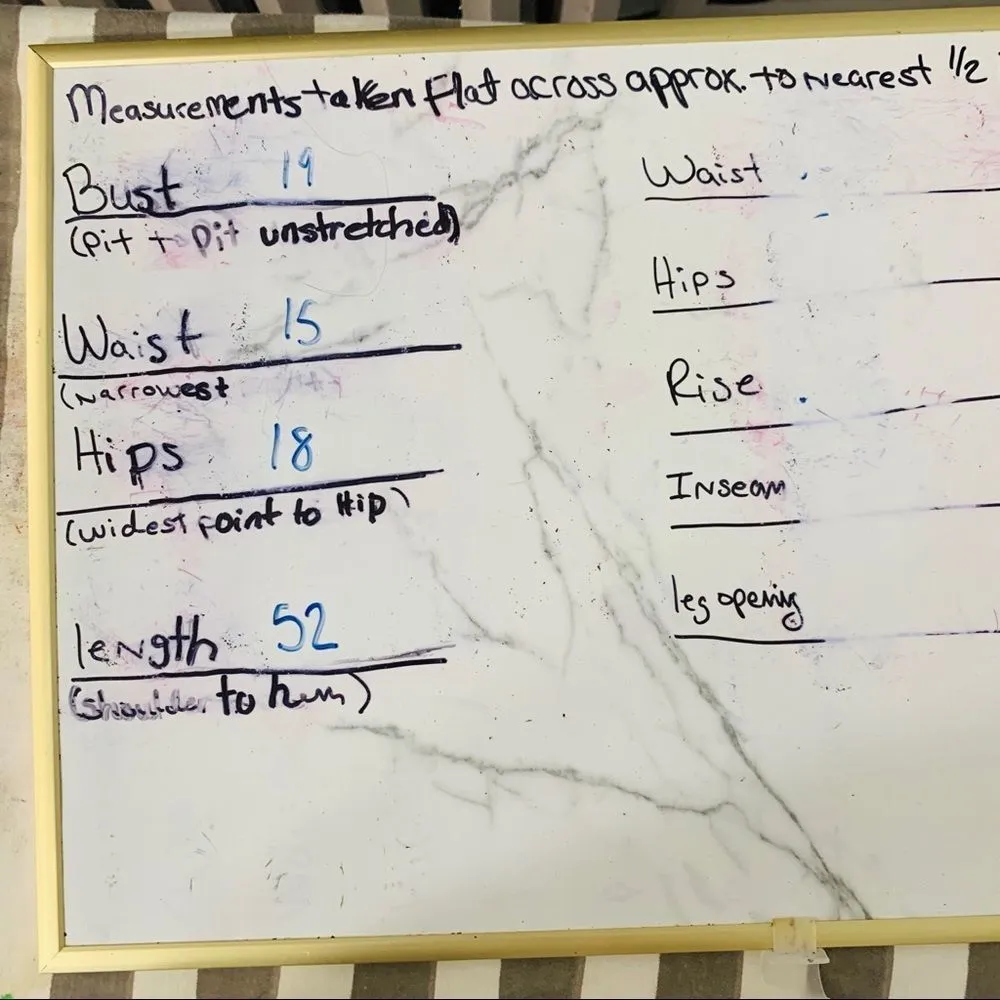 Measurements taken Flat across approx. to nearest 1/2
Bust 19
(pit to pit unstretched)
Waist 15
(Narrowest
Hips 18
(widest point to Hip)
length 52
(shoulder to hem)
Waist
Hips
Rise
Inseam
leg opening